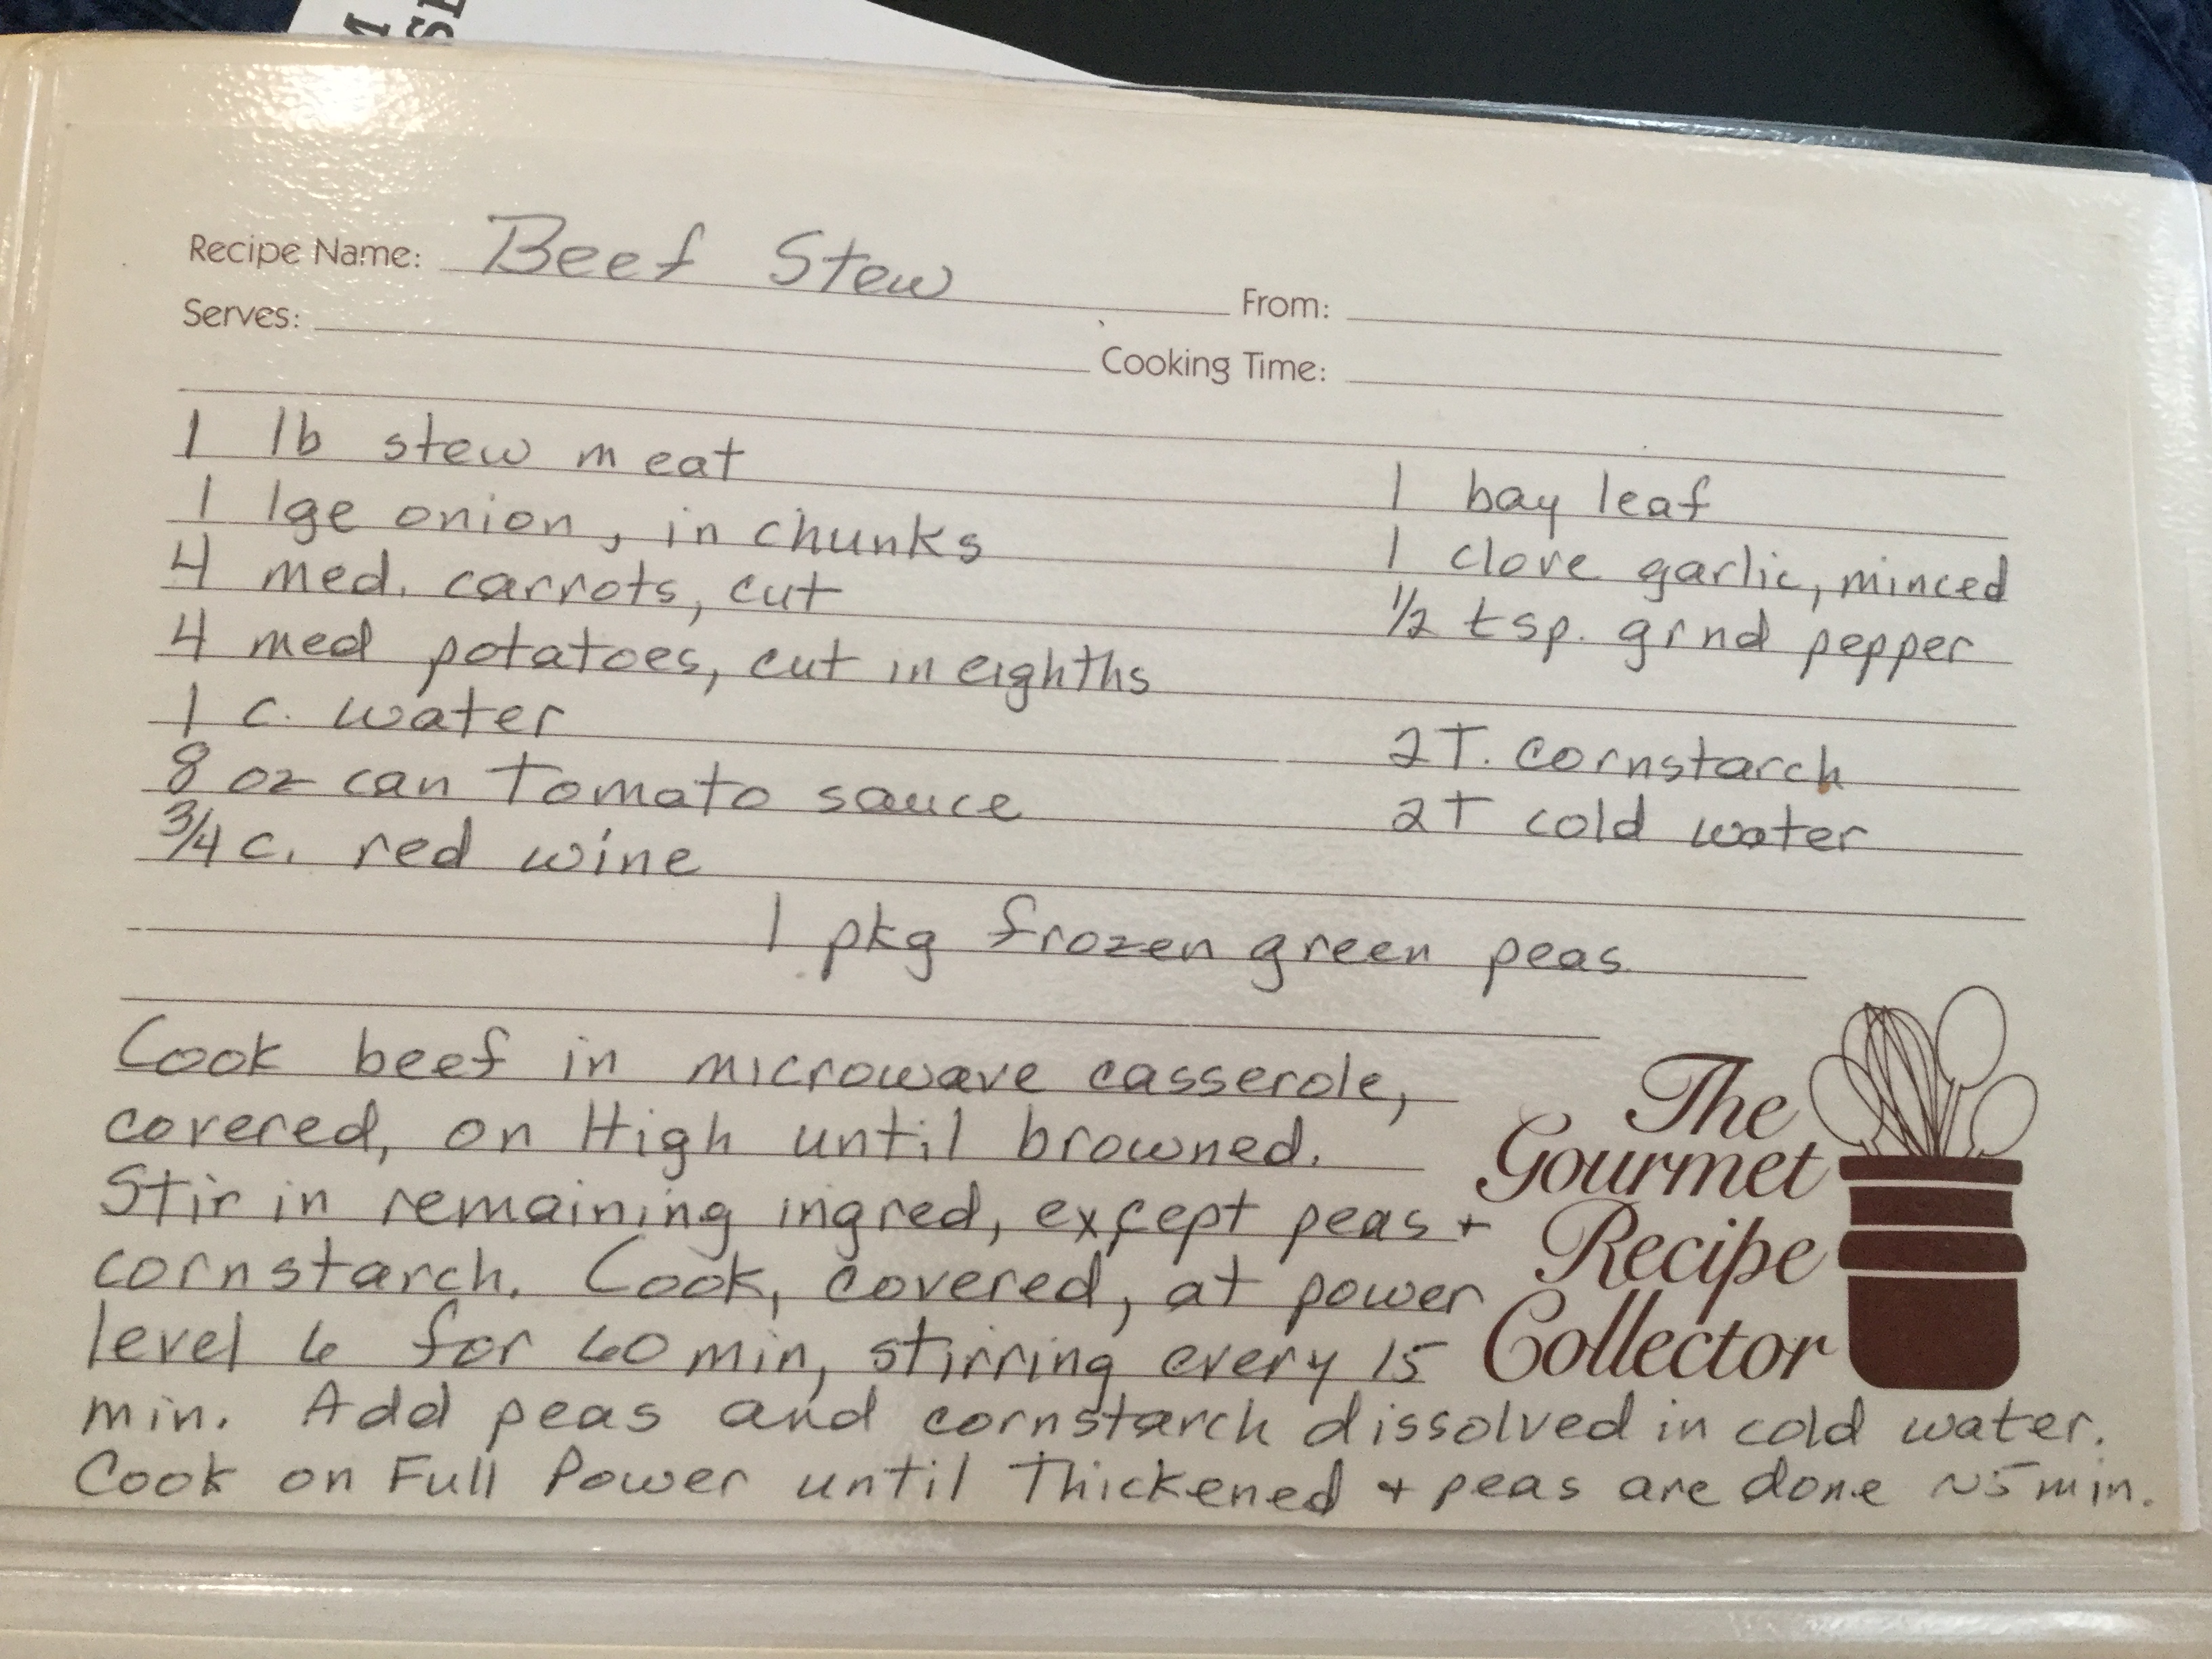 M
Recipe Name: Beef Stew
From:
Serves:
Cooking Time:
1 lb stew meat
1 lge onion, in chunks
4 med. carrots, cut
4 med potatoes, cut in eighths
1 c. water
8 oz can Tomato sauce
3/4 c. red wine
1 bay leaf
1 clove garlic, minced
1/2 tsp. grnd pepper
2T. cornstarch
2T cold water
1 pkg frozen green peas
Cook beef in microwave casserole,
covered, on High until browned.
Stir in remaining ingred, except peas +
cornstarch. Cook, covered, at power
level 6 for 60 min, stirring every 15
min. Add peas and cornstarch dissolved in cold water.
Cook on Full Power until Thickened + peas are done ~5 min.
The
Gourmet
Recipe
Collector